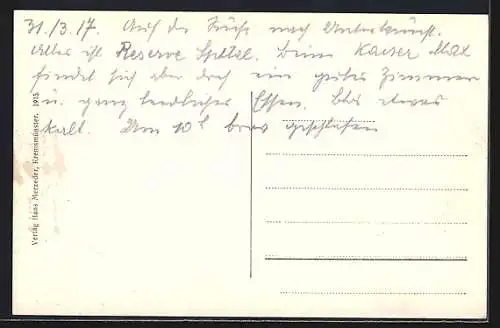 31./3.17. Auf der Suche nach Unterkunft.
Alles ist Reserve Spittal. beim Kaiser Max
findet sich aber doch ein gutes Zimmer
u. ganz leidliches Essen. Bloß etwas
kalt. Um 10h brav geschlafen
Verlag Hans Merzeder, Kremsmünster, 1915